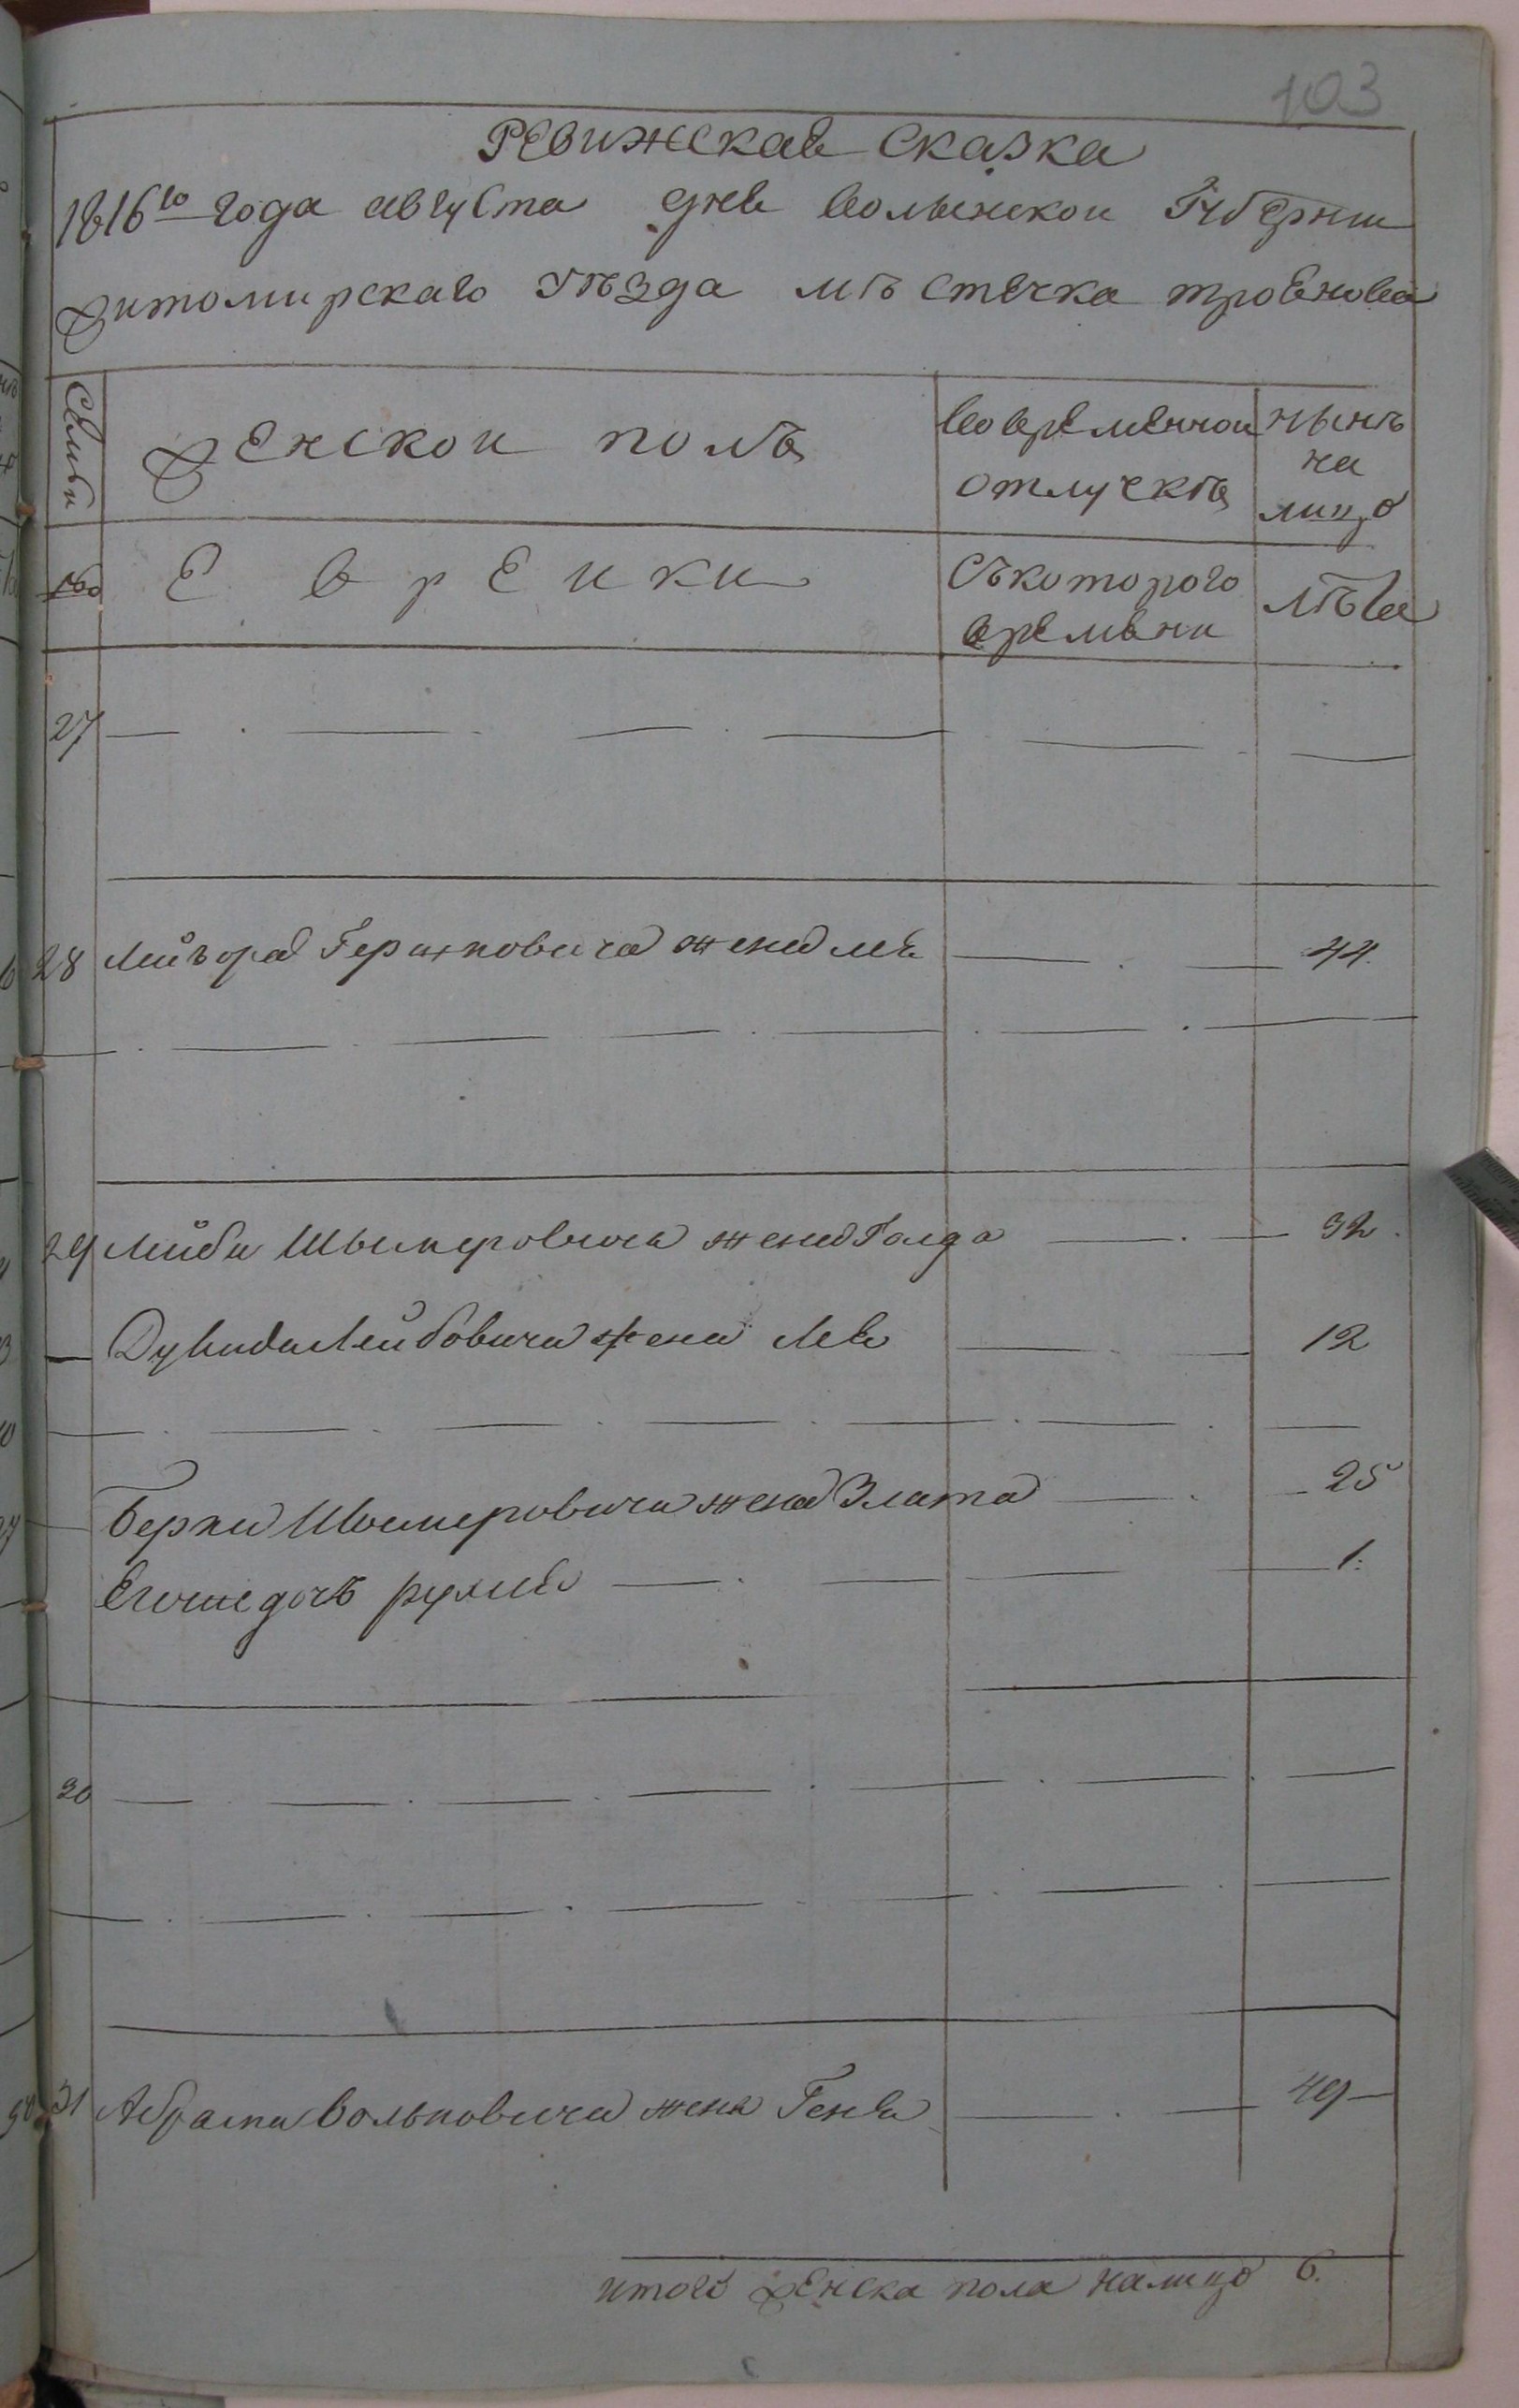 103
Ревижская Сказка
1816го года августа дня Волынской Губернии
Житомирскаго уѣзда мѣстечка троянова
Семьи Женской полъ Во временной отлучкѣ нынѣ на лицо
No Еврейки Съ которого времени лѣта
27
28 Гершковича жена 44.
29 Лейби Шмеровича жена Голда 32.
Лейбовича жена Лея 12
Берки Шмеровича жена Злата 25
Егоже дочь рухля 1.
30
31 Абрама Вольковича жена Геня 49
итого женска пола налицо 6.